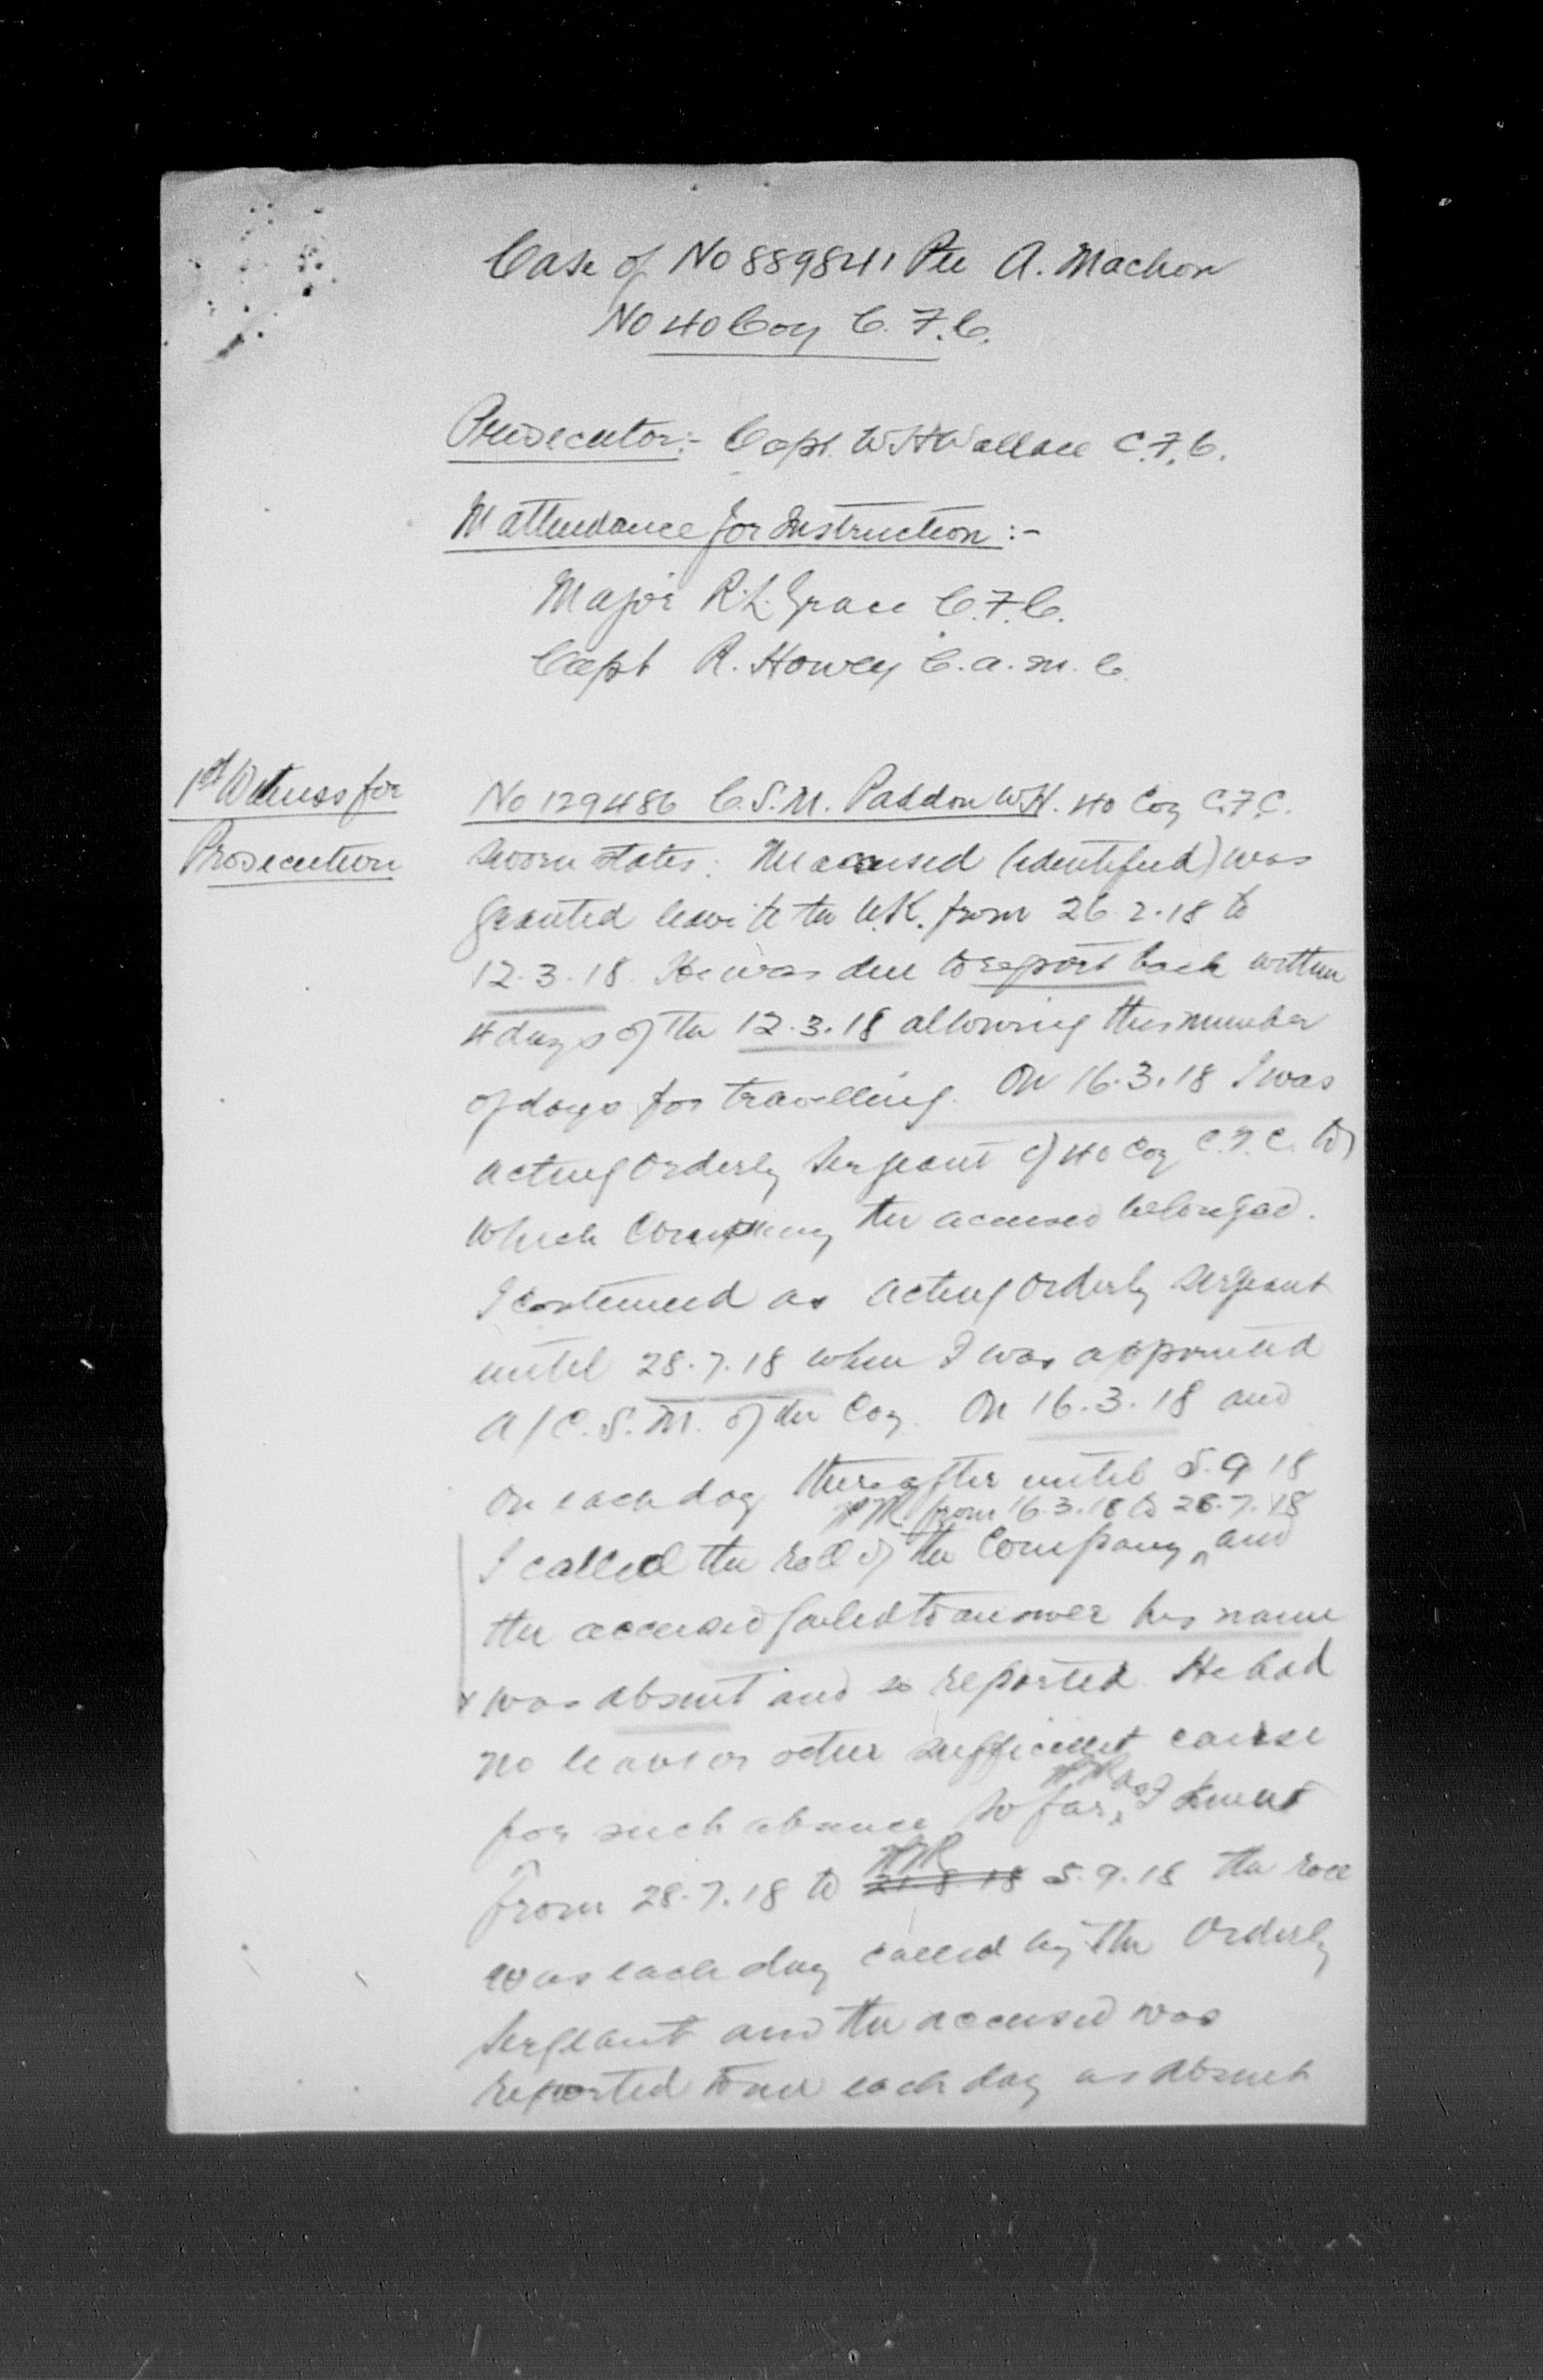 Case of No 889841 Pte A. Machon
No 40 Coy C.F.C.
Prosecutor:- Capt. W H Wallace C.F.C.
In attendance for Instruction :-
Major R.L. Grace C.F.C.
Capt R. Howey C.A.M.C.
1st Witness for
Prosecution
No 129486 C.S.M. Paddon W.H. 40 Coy C.F.C.
sworn states. The accused (identified) was
granted leave to the U.K. from 26.2.18 to
12.3.18 He was due to report back within
4 days of the 12.3.18 allowing this number
of days for travelling. On 16.3.18 I was
acting Orderly Sergeant of 40 Coy C.F.C. to
which Company the accused belonged.
I continued as acting Orderly Sergeant
until 28.7.18 when I was appointed
A/C.S.M. of the Coy. On 16.3.18 and
on each day thereafter until 5.9.18
from 16.3.18 to 28.7.18
I called the roll of the Company and
the accused failed to answer his name
& was absent and so reported. He had
no leave or other sufficient cause
for such absence so far as I knew
From 28.7.18 to 21.8.18 5.9.18 the roll
was each day called by the Orderly
Sergeant and the accused was
reported to me each day as absent